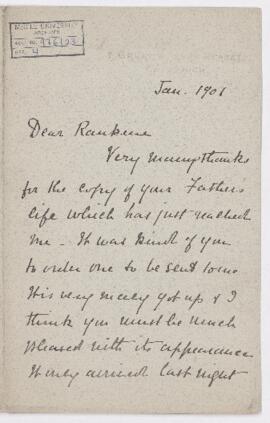 McGILL UNIVERSITY
ARCHIVES
ACC. NO.
REF.
Jan. 1901
Dear Rankine
Very many thanks
for the copy of your Father's
life which has just reached
me - It was kind of you
to order one to be sent to me
It is very nicely got up & I
think you must be much
pleased with its appearance
It only arrived last night